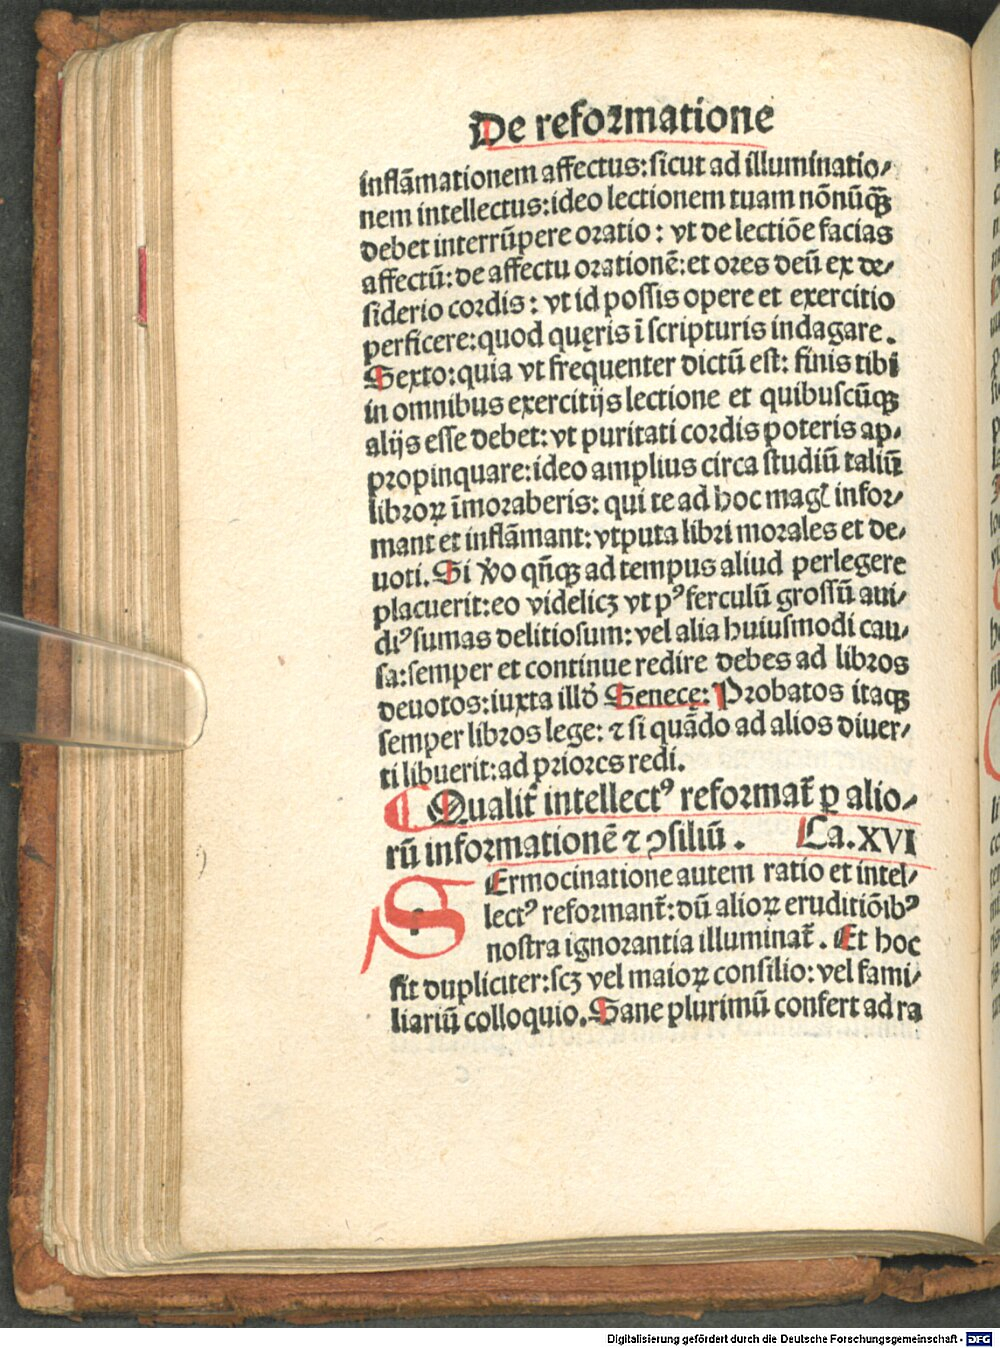 De reformatione
inflãmationem affectus: sicut ad illuminatio/
nem intellectus: ideo lectionem tuam nõnũqꝫ
debet interrũpere oratio: vt de lectiõe facias
affectũ: de affectu orationẽ: et ores deũ ex de/
siderio cordis: vt id possis opere et exercitio
perficere: quod quęris ĩ scripturis indagare.
Sexto: quia vt frequenter dictũ est: finis tibi
in omnibus exercitijs lectione et quibuscũqꝫ
alijs esse debet: vt puritati cordis poteris ap/
propinquare: ideo amplius circa studiũ taliũ
libroꝝ ĩmoraberis: qui te ad hoc magꝭ infor/
mant et inflãmant: vtputa libri morales et de/
uoti. Si v̾o qñqꝫ ad tempus aliud perlegere
placuerit: eo videlicꝫ vt pꝰ ferculũ grossũ aui/
diꝰ sumas delitiosum: vel alia huiusmodi cau/
sa: semper et continue redire debes ad libros
deuotos: iuxta illđ Senecę: Probatos itaqꝫ
semper libros lege: ⁊ si quãdo ad alios diuer/
ti libuerit: ad priores redi.
Qualit̃ intellectꝰ reformat̃ ꝑ alio/
rũ informationẽ ⁊ ꝯsiliũ. Ca. XVI
SErmocinatione autem ratio et intel/
lectꝰ reformant̃: dũ alioꝝ eruditiõibꝰ
nostra ignorantia illuminat̃. Et hoc
fit dupliciter: scꝫ vel maioꝝ consilio: vel fami/
liariũ colloquio. Sane plurimũ confert ad ra
Digitalisierung gefördert durch die Deutsche Forschungsgemeinschaft - DFG